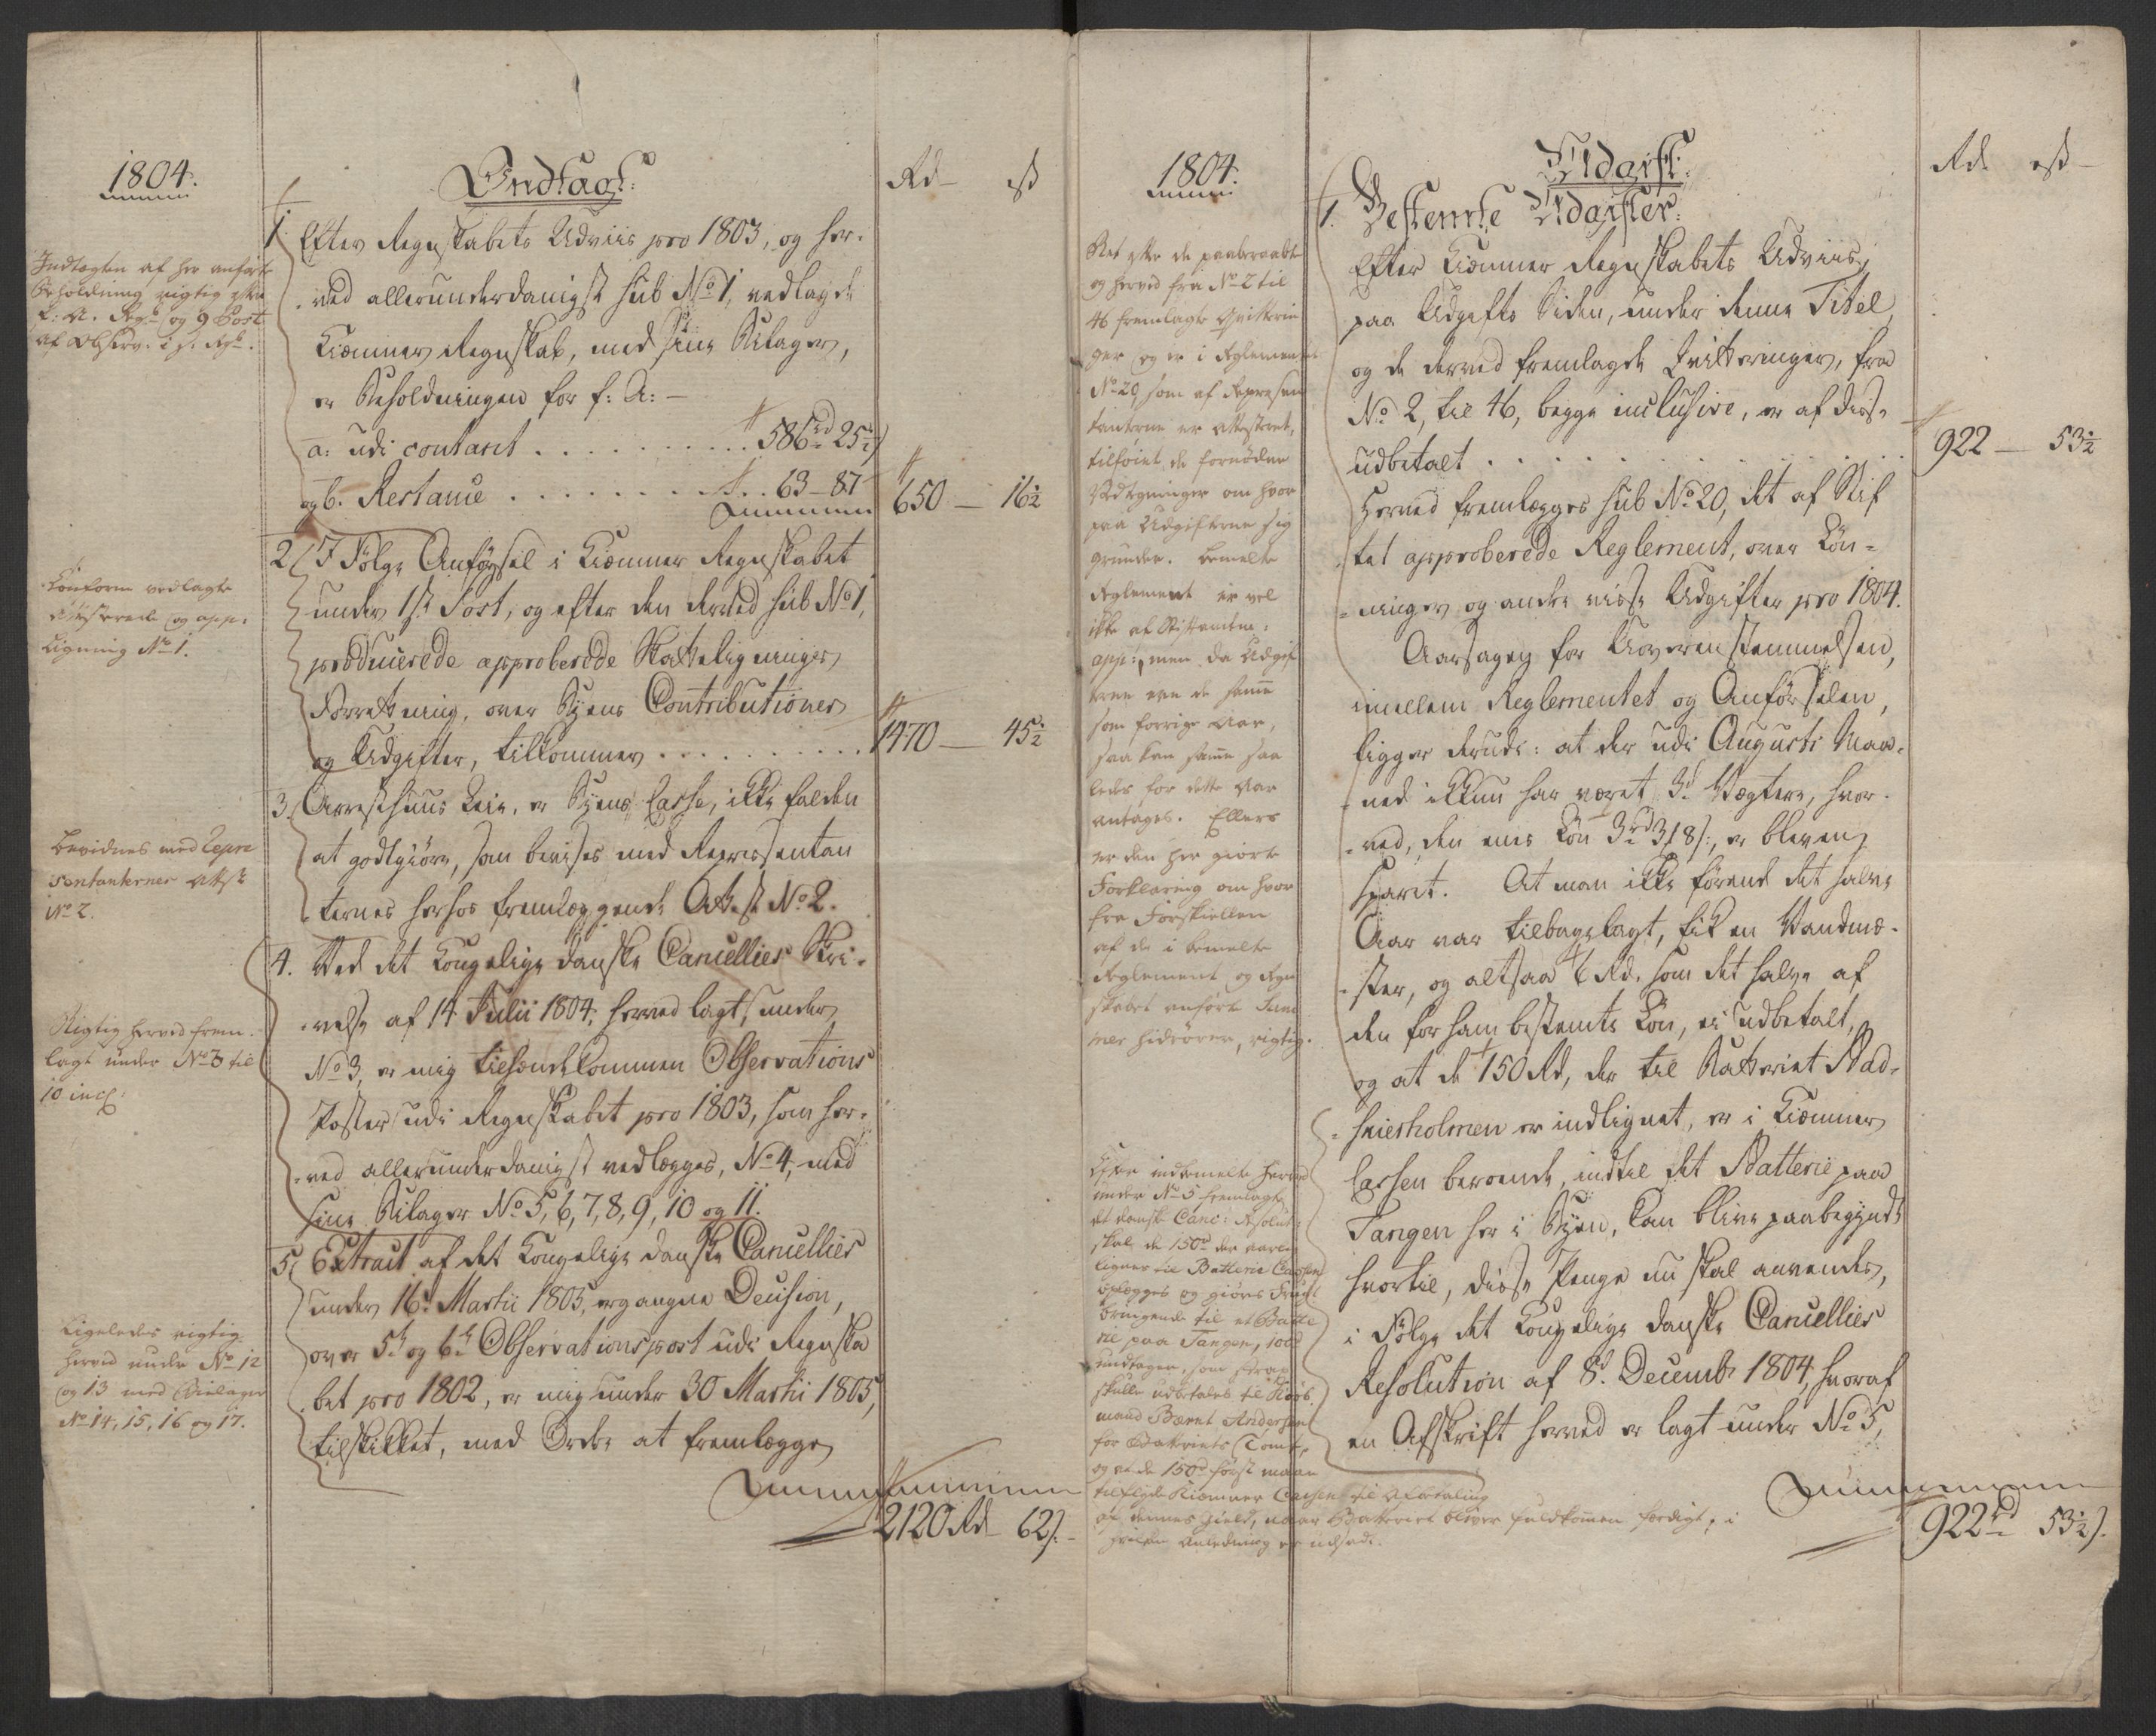 1804.
Indtægt:
Rd
ß
Indtægten af her anførte
Beholdning rigtig efter
f: A. Regsk: og 9 Post
af Observ: i s. Regsk.
1. Efter Regnskabets Udviis pro 1803, og her-
ved allerunderdanigst sub No 1, vedlagde
Kiæmner Regnskab, med sine Bilager,
er Beholdningen for f: A: —
a: udi contant . . . . . . . . 586rd 25½
og b. Restance . . . . . . . . 63 – 87
650 — 16½
Conform vedlagte
attesterede og app:
Ligning No 1.
2. I Følge Anførsel i Kiæmner Regnskabet
under 1ste Post, og efter den derved sub No 1,
producerede approberede Skatteligninger
Forretning, over Byens Contributioner
og Udgifter, tilkommer . . . . . . . .
1470 — 45½
Bevidnes med Repre
sentanternes Attest
No 2.
3. Arresthuus Leie, er Byens Casse, ikke falden
at godtgiøre, som bevises med Repræsentan
ternes herhos fremlæggende Attest No 2.
Rigtig herved frem-
lagt under No 3 til
10 incl:
4. Ved det Kongelige danske Cancellies Skri-
velse af 14 Julii 1804, herved lagt under
No 3, er mig tilhændekommen Observations
Poster udi Regnskabet pro 1803, som her-
ved allerunderdanigst vedlægges, No 4, med
sine Bilager No 5, 6, 7, 8, 9, 10 og 11.
Ligeledes rigtig
herved under No 12
og 13 med Bielager
No 14, 15, 16 og 17.
5. Extract af det Kongelige danske Cancellies
under 16d Martii 1805, ergangne Decision,
over 5te og 6te Observationspost udi Regnska
bet pro 1802, er mig under 30 Martii 1805,
tilskikket, med Ordre at fremlægge
2120 Rd 62 ß.
1804.
Udgift:
Rd ß
1. Bestemte Udgifter:
Ret efter de paaberaabte
og herved fra No 2 til
46 fremlagte Qvitterin
ger og er i Reglementet
No 20, som af Repræsen
tanterne er attesteret,
tilføiet de fornødne
Udtegninger om hvor
paa Udgifterne sig
grunder. Bemelte
Reglement er vel
ikke af Stiftamtm:
app:, men da Udgif
terne ere de samme
som forrige Aar,
saa kan samme saa
ledes for dette Aar
antages. Ellers
er den her giorte
Forklaring om hvor
fra Forskiellen
af de i bemelte
Reglement og Regn
skabet anførte Sum
mer hidrører, rigtig.
Efter Kiæmner Regnskabets Udviis,
paa Udgifts Siden, under denne Titel,
og de derved fremlagde Qvitteringer, fra
No 2, til 46, begge inclusive, er af disse
udbetalt . . . . . . . . . . . .
922 — 53½
Herved fremlægges sub No 20, det af Stif
tet approberede Reglement, over Løn-
ninger og andre visse Udgifter pro 1804.
Aarsagen for Uoverenstemmelsen,
imellem Reglementet og Anførselen,
ligger derudi: at der udi Augusti Maa-
ned ikkun har været 3d Vægtere, hvor-
ved, den enes Løn 3rd 31 ß, er bleven
sparet. At man ikke førend det halve
Aar var tilbagelagt, fik en Vandme-
ster, og altsaa 6 Rd. som det halve af
den for ham bestemte Løn, ei udbetalt,
og at de 150 Rd, der til Batteriet Rad-
heiesholmen er indlignet, er i Kiæmner
Cassen beroende, indtil det Batterie paa
Tangen her i Byen, kan blive paabegyndt
hvortil, disse Penge nu skal anvendes,
i Følge det Kongelige danske Cancellies
Resolution af 8d Decembr 1804, hvoraf
en Afskrift herved er lagt under No 5,
indbemelte herved
under No 5 fremlagte
det danske Canc: Resolut:
skal de 150rd der aarlig
lignes til Batterie Cassen
oplægges og giøres Frugt
bringende til et Batte
rie paa Tangen, 100rd
undtagen, som strax
skulle udbetales til Kiøb
mand Bærnt Andersen
for Batteriets Tomt,
og at de 150rd først maae
tilflyde Kiæmner Cassen til Afbetaling
af dennes Gield, naar Batteriet bliver fuldkommen færdigt, i
hvilken Anledning er udsadt.
922rd 53½ ß.